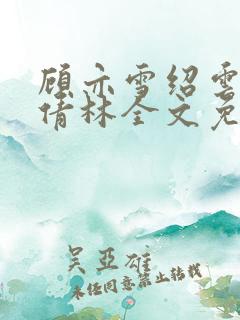 顾亦雪绍雲
倩林全文免
吴亞雄
未经同意禁止转载